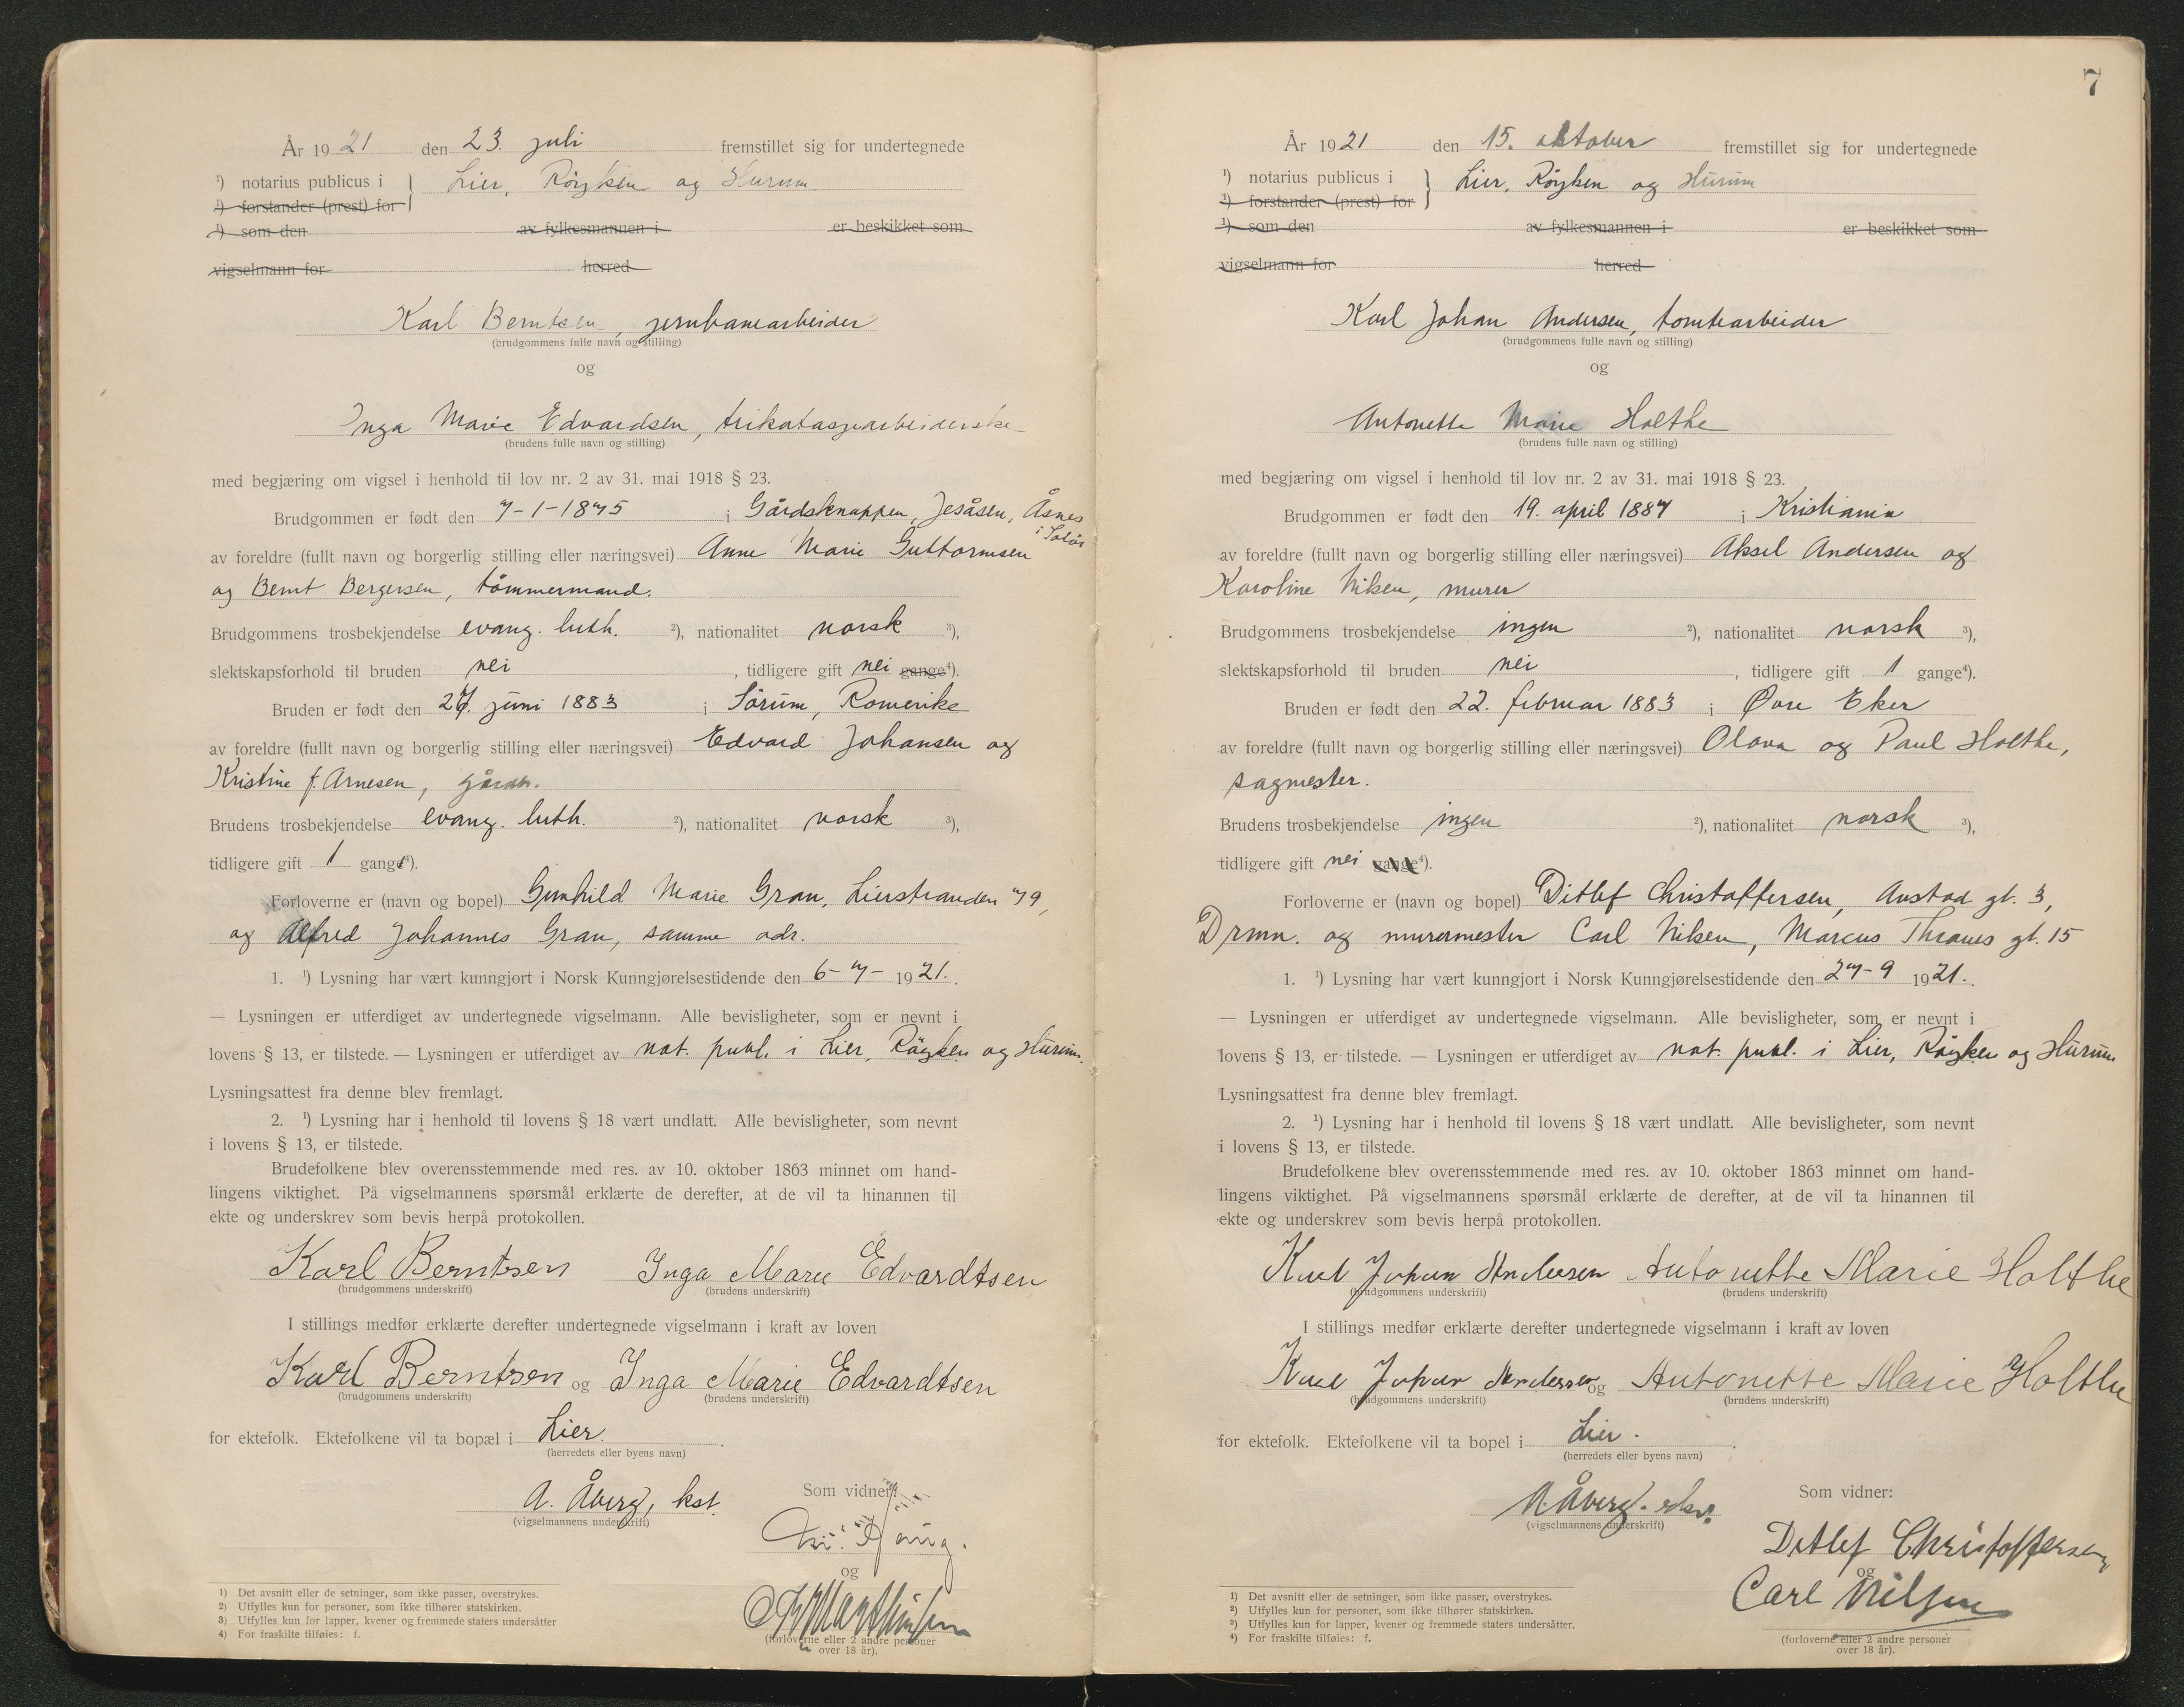 År 1921 den 23. juli fremstillet sig for undertegnede
¹) notarius publicus i } Lier, Röyken og Hurum
¹) forstander (prest) for
¹) som den av fylkesmannen i er beskikket som
vigselmann for herred
Karl Berntsen, jernbanearbeider
(brudgommens fulle navn og stilling)
og
Inga Marie Edvardsen, trikotasjearbeiderske
(brudens fulle navn og stilling)
med begjæring om vigsel i henhold til lov nr. 2 av 31. mai 1918 § 23.
Brudgommen er født den 7-1-1875 i Gårdsknappen, Jesåsen, Åsnes
i Solör
av foreldre (fullt navn og borgerlig stilling eller næringsvei) Anne Marie Guttormsen
og Bernt Bergersen, tömmermand.
Brudgommens trosbekjendelse evang. luth. ²), nationalitet norsk ³),
slektskapsforhold til bruden nei, tidligere gift nei gange⁴).
Bruden er født den 27. juni 1883 i Sörum, Romerike
av foreldre (fullt navn og borgerlig stilling eller næringsvei) Edvard Johansen og
Kristine f. Arnesen, gårdbr.
Brudens trosbekjendelse evang. luth. ²), nationalitet norsk ³),
tidligere gift 1 gange⁴).
Forloverne er (navn og bopel) Gunhild Marie Gran, Lierstranden 79,
og Alfred Johannes Gran, samme adr.
1. ¹) Lysning har vært kunngjort i Norsk Kunngjørelsestidende den 6-7-1921.
— Lysningen er utferdiget av undertegnede vigselmann. Alle bevisligheter, som er nevnt i
lovens § 13, er tilstede. — Lysningen er utferdiget av not. publ. i Lier, Röyken og Hurum.
Lysningsattest fra denne blev fremlagt.
2. ¹) Lysning har i henhold til lovens § 18 vært undlatt. Alle bevisligheter, som nevnt
i lovens § 13, er tilstede.
Brudefolkene blev overensstemmende med res. av 10. oktober 1863 minnet om hand-
lingens viktighet. På vigselmannens spørsmål erklærte de derefter, at de vil ta hinannen til
ekte og underskrev som bevis herpå protokollen.
Karl Berntsen Inga Marie Edvardtsen
(brudgommens underskrift) (brudens underskrift)
I stillings medfør erklærte derefter undertegnede vigselmann i kraft av loven
Karl Berntsen og Inga Marie Edvardtsen
(brudgommens underskrift) (brudens underskrift)
for ektefolk. Ektefolkene vil ta bopæl i Lier.
(herredets eller byens navn)
A. Åberg, kst.
(vigselmannens underskrift)
Som vidner:
og
(forloverne eller 2 andre personer
over 18 år).
1) Det avsnitt eller de setninger, som ikke passer, overstrykes.
2) Utfylles kun for personer, som ikke tilhører statskirken.
3) Utfylles kun for lapper, kvener og fremmede staters undersåtter
4) For fraskilte tilføies: f.
7
År 1921 den 15. oktober fremstillet sig for undertegnede
¹) notarius publicus i } Lier, Röyken og Hurum
¹) forstander (prest) for
¹) som den av fylkesmannen i er beskikket som
vigselmann for herred
Karl Johan Andersen, tomtearbeider
(brudgommens fulle navn og stilling)
og
Antonette Marie Holthe
(brudens fulle navn og stilling)
med begjæring om vigsel i henhold til lov nr. 2 av 31. mai 1918 § 23.
Brudgommen er født den 19. april 1887 i Kristiania
av foreldre (fullt navn og borgerlig stilling eller næringsvei) Aksel Andersen og
Karoline Nilsen, murer
Brudgommens trosbekjendelse ingen ²), nationalitet norsk ³),
slektskapsforhold til bruden nei, tidligere gift 1 gange⁴).
Bruden er født den 22. februar 1883 i Øvre Eker
av foreldre (fullt navn og borgerlig stilling eller næringsvei) Olava og Paul Holthe,
sagmester.
Brudens trosbekjendelse ingen ²), nationalitet norsk ³),
tidligere gift nei gange⁴).
Forloverne er (navn og bopel) Ditlef Christoffersen, Austad gt. 3,
Drmn. og murermester Carl Nilsen, Marcus Thranes gt. 15
1. ¹) Lysning har vært kunngjort i Norsk Kunngjørelsestidende den 27-9 1921.
— Lysningen er utferdiget av undertegnede vigselmann. Alle bevisligheter, som er nevnt i
lovens § 13, er tilstede. — Lysningen er utferdiget av not. publ. i Lier, Röyken og Hurum
Lysningsattest fra denne blev fremlagt.
2. ¹) Lysning har i henhold til lovens § 18 vært undlatt. Alle bevisligheter, som nevnt
i lovens § 13, er tilstede.
Brudefolkene blev overensstemmende med res. av 10. oktober 1863 minnet om hand-
lingens viktighet. På vigselmannens spørsmål erklærte de derefter, at de vil ta hinannen til
ekte og underskrev som bevis herpå protokollen.
Karl Johan Andersen Antonette Marie Holthe
(brudgommens underskrift) (brudens underskrift)
I stillings medfør erklærte derefter undertegnede vigselmann i kraft av loven
Karl Johan Andersen og Antonette Marie Holthe
(brudgommens underskrift) (brudens underskrift)
for ektefolk. Ektefolkene vil ta bopel i Lier.
(herredets eller byens navn)
A. Åberg.
(vigselmannens underskrift)
Som vidner:
Ditlef Christoffersen
og
Carl Nilsen
(forloverne eller 2 andre personer
over 18 år).
¹) Det avsnitt eller de setninger, som ikke passer, overstrykes.
²) Utfylles kun for personer, som ikke tilhører statskirken.
³) Utfylles kun for lapper, kvener og fremmede staters undersåtter.
⁴) For fraskilte tilføies: f.